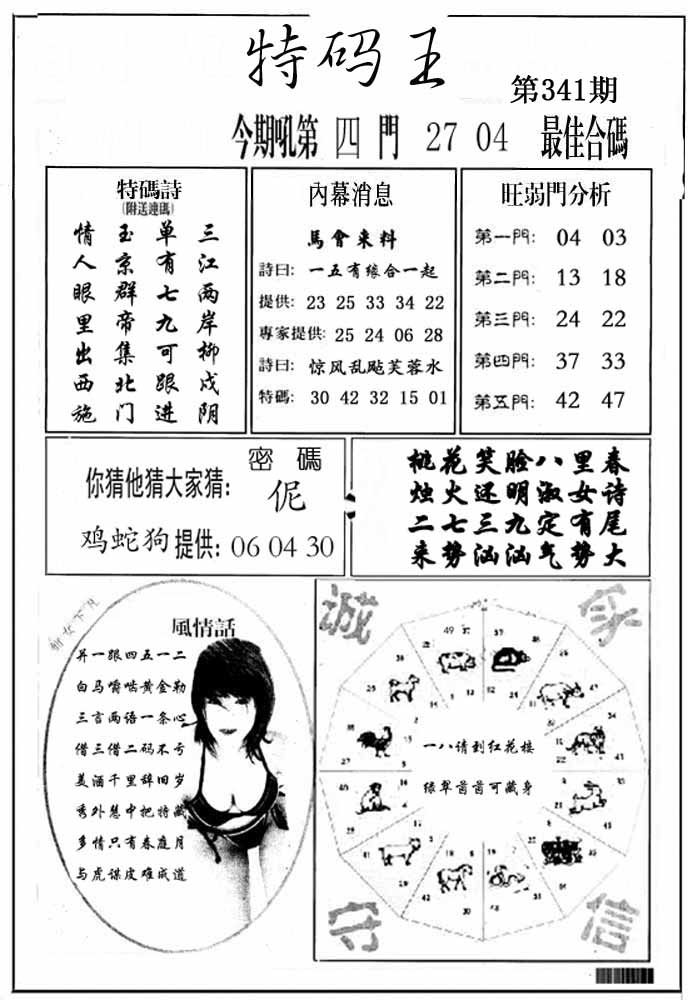 特码王
第341期
今期吼第 四 門 27 04 最佳合碼
特碼詩
(附送連碼)
三江两岸柳成阴
单有七九可跟进
玉京群帝集北门
情人眼里出西施
內幕消息
馬會来料
詩曰: 一五有缘合一起
提供: 23 25 33 34 22
專家提供: 25 24 06 28
詩曰: 惊风乱飐芙蓉水
特碼: 30 42 32 15 01
旺弱門分析
第一門: 04 03
第二門: 13 18
第三門: 24 22
第四門: 37 33
第五門: 42 47
密碼
你猜他猜大家猜: 伲
鸡蛇狗提供: 06 04 30
桃花笑脸八里春
烛火还明淑女诗
二七三九定有尾
来势汹汹气势大
風情話
并一跟四五一二
白马嚼啮黄金勒
三言两语一条心
借三借二码不亏
美酒千里辞旧岁
秀外慧中把特藏
多情只有春庭月
与虎谋皮难成道
诚 家
一八请到红花楼
绿翠茵茵可藏身
守 信